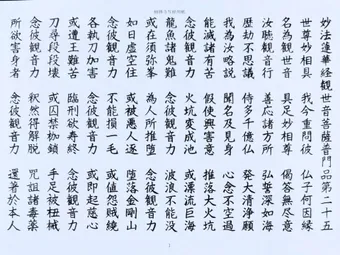 妙法蓮華経観世音菩薩普門品第二十五
世尊妙相具 我今重問彼 仏子何因縁
名為観世音 具足妙相尊 偈答無尽意
汝聴観音行 善応諸方所 弘誓深如海
歴劫不思議 侍多千億仏 発大清浄願
我為汝略説 聞名及見身 心念不空過
能滅諸有苦 假使興害意 推落大火坑
念彼観音力 火坑変成池 或漂流巨海
龍魚諸鬼難 念彼観音力 波浪不能没
或在須弥峯 為人所推堕 念彼観音力
如日虚空住 或被悪人逐 堕落金剛山
念彼観音力 不能損一毛 或値怨賊繞
各執刀加害 念彼観音力 咸即起慈心
或遭王難苦 臨刑欲寿終 念彼観音力
刀尋段段壊 或囚禁枷鎖 手足被杻械
念彼観音力 釈然得解脱 呪詛諸毒薬
所欲害身者 念彼観音力 還著於本人
1